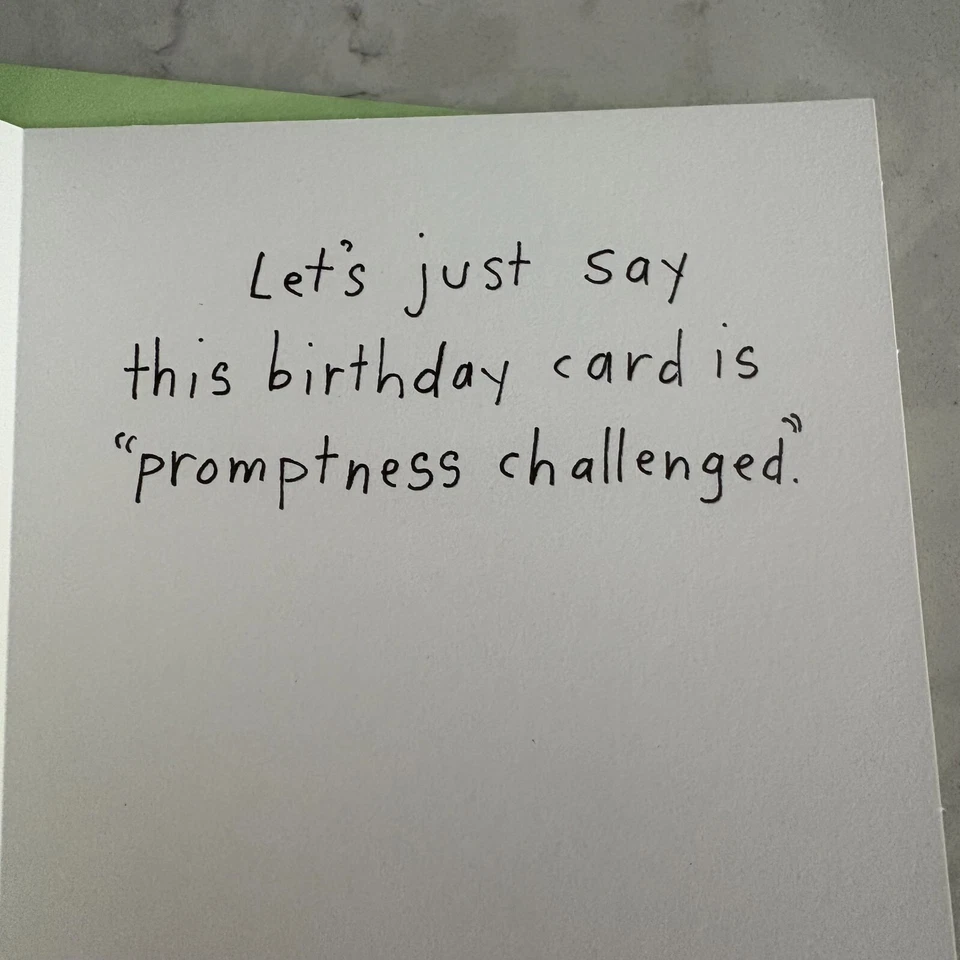 Let's just say
this birthday card is
“promptness challenged.”